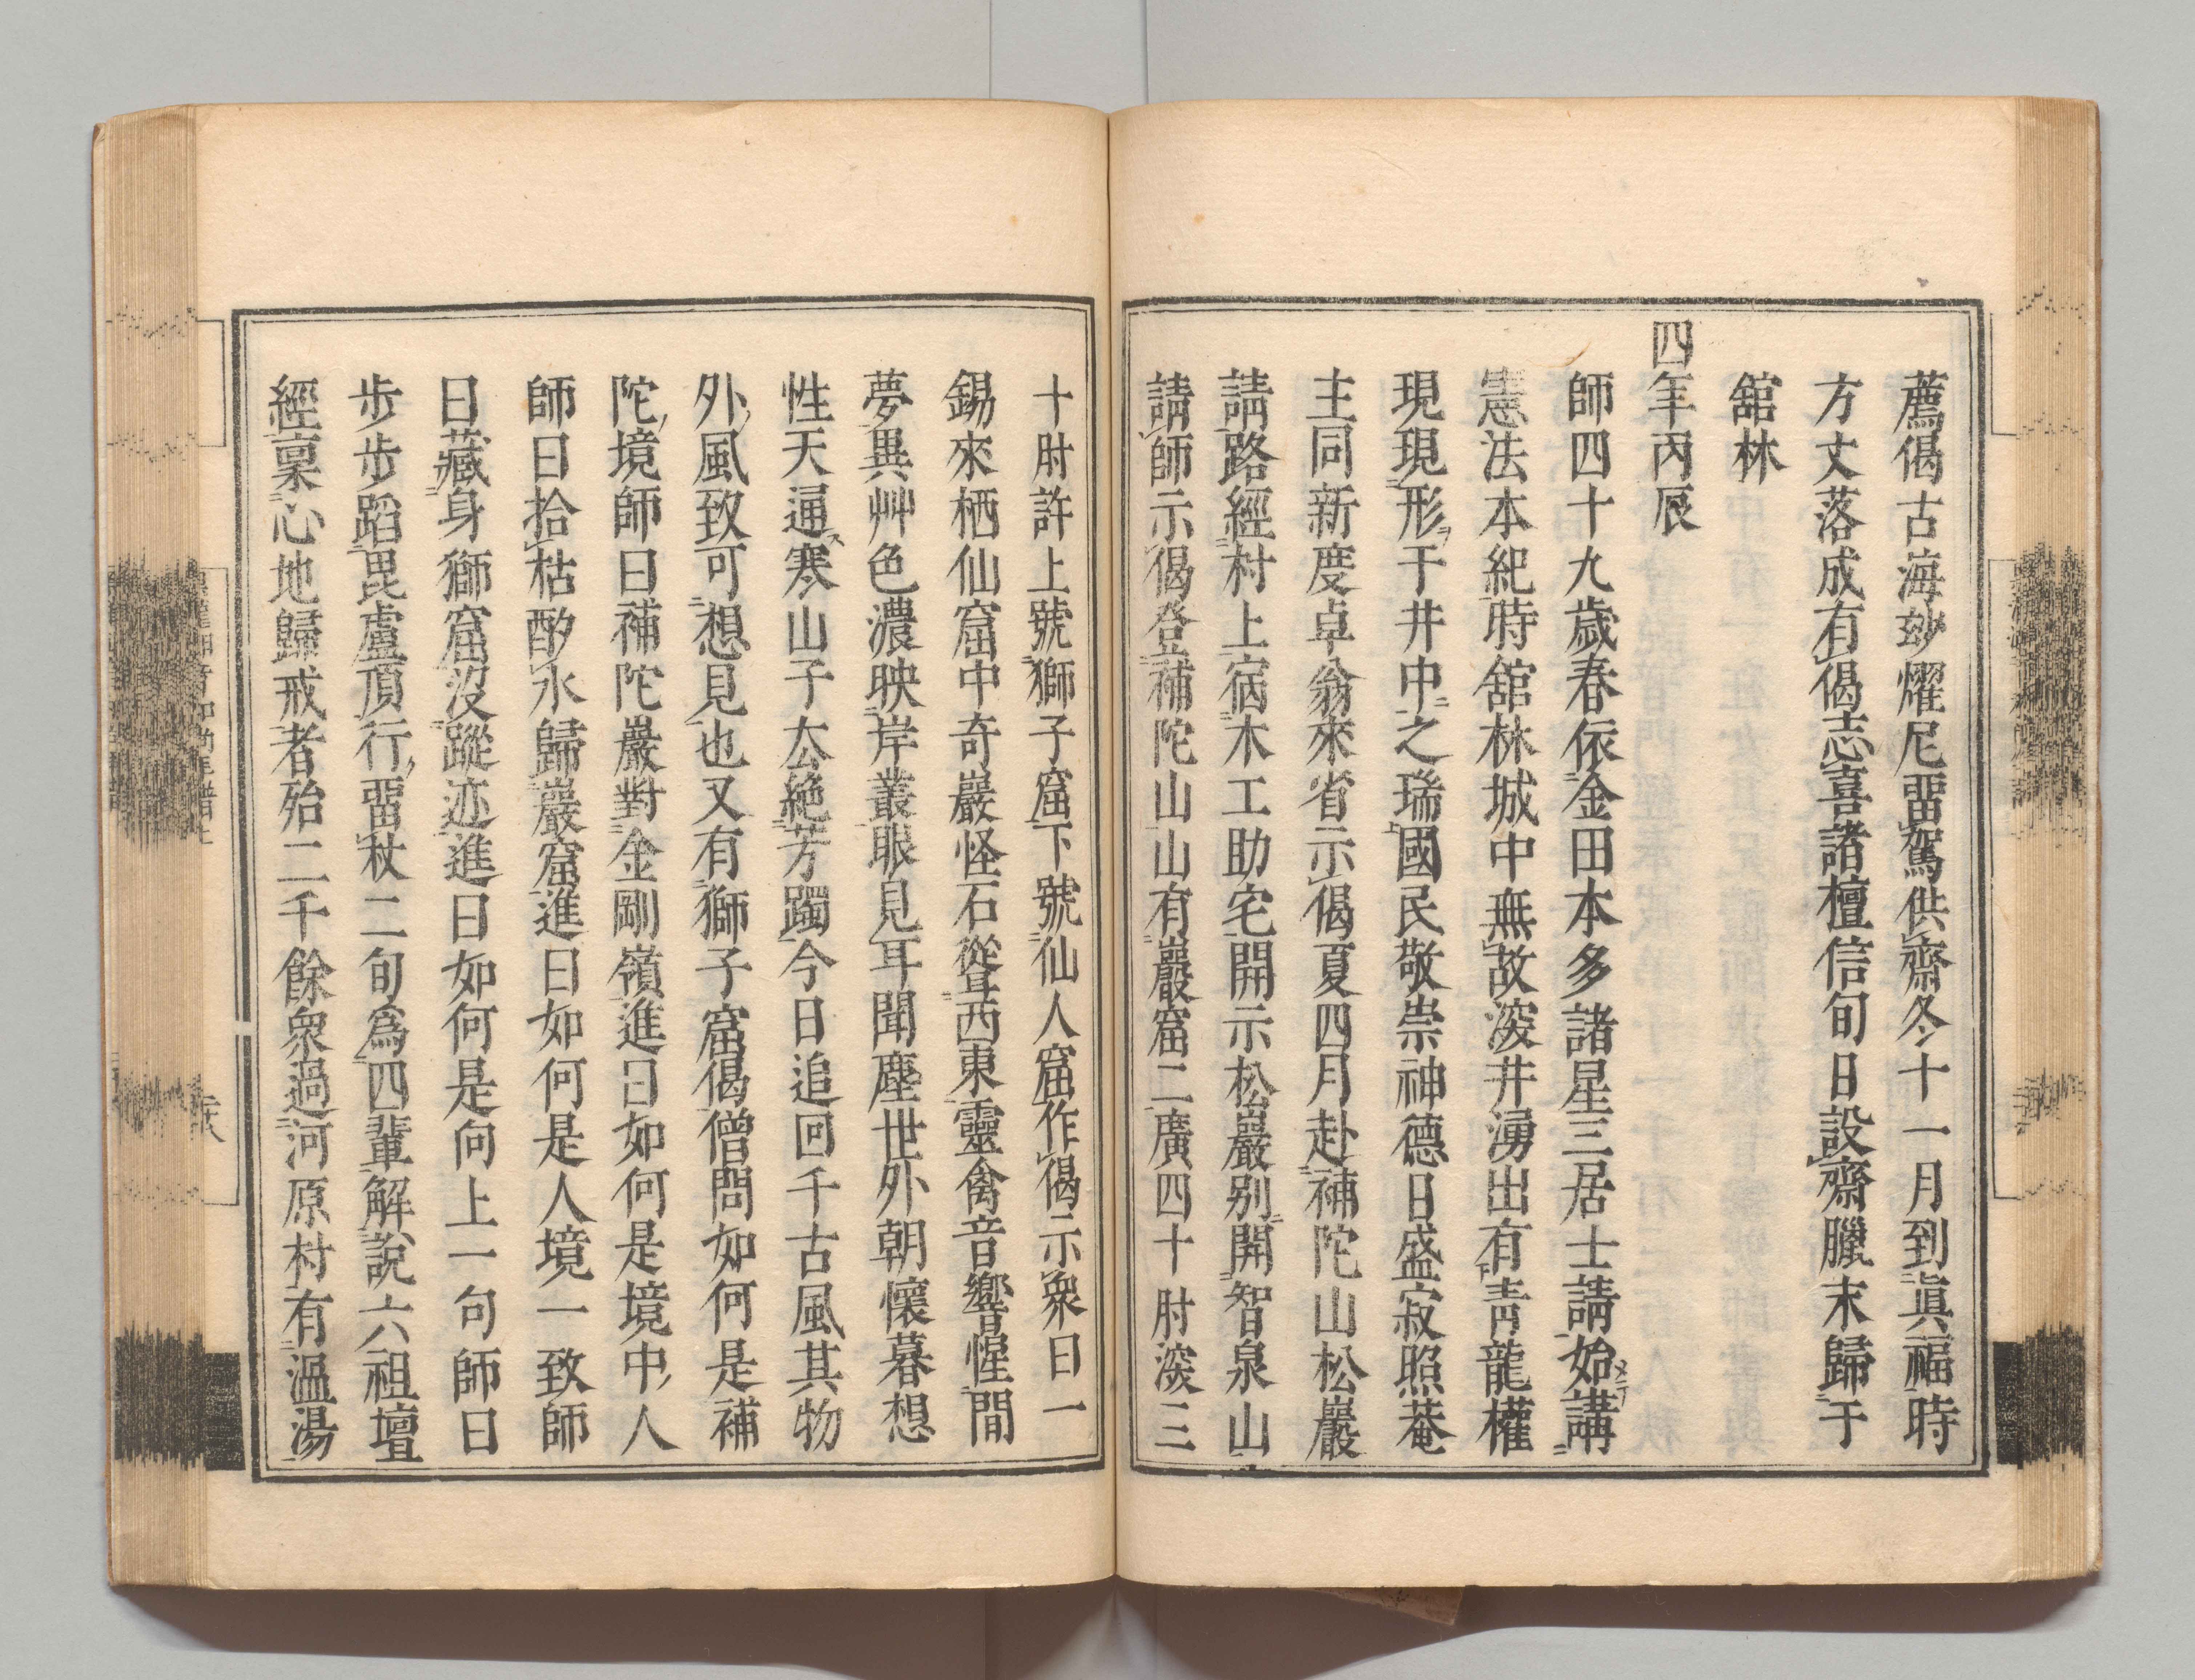 薦偈古海玅燿尼畱駕供齋冬十一月到眞福時
方丈落成有偈志喜諸檀信旬日設齋臘末歸于
舘林
四年丙辰
師四十九歲春依金田本多諸星三居士請始講
憲法本紀時舘林城中無故深井湧出有靑龍權
現現形于井中之瑞國民敬崇神德日盛寂照菴
主同新度卓翁來省示偈夏四月赴補陀山松巖
請路經村上宿木工助宅開示松巖別開智泉山
請師示偈登補陀山山有巖窟二廣四十肘深三
十肘許上號獅子窟下號仙人窟作偈示衆曰一
錫來栖仙窟中奇巖怪石聳西東靈禽音響惺間
夢異艸色濃映岸叢眼見耳聞塵世外朝懷暮想
性天通寒山子厺絶芳躅今日追回千古風其物
外風致可想見也又有獅子窟偈僧問如何是補
陀境師曰補陀巖對金剛嶺進曰如何是境中人
師曰拾枯酌水歸巖窟進曰如何是人境一致師
曰藏身獅窟沒蹤迹進曰如何是向上一句師曰
步步蹈毘盧頂行畱杖二旬爲四輩解說六祖壇
經稟心地歸戒者殆二千餘衆過河原村有溫湯